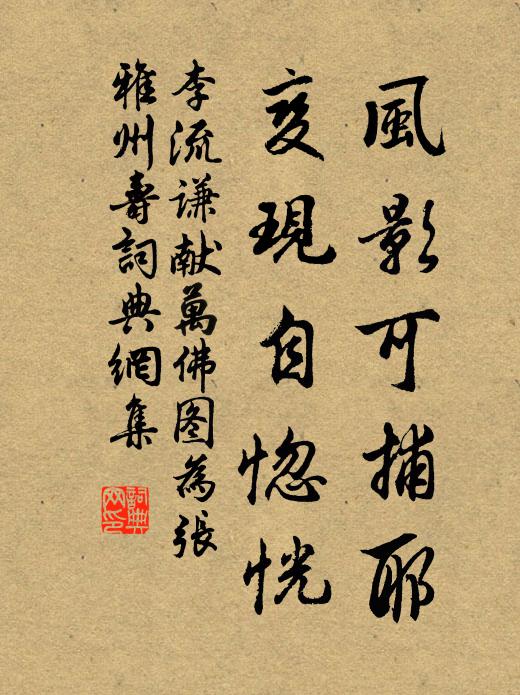 風影可捕耶
变現自惚恍
李流谦献萬佛图為張
雅州壽詞典網集
詞典
网印